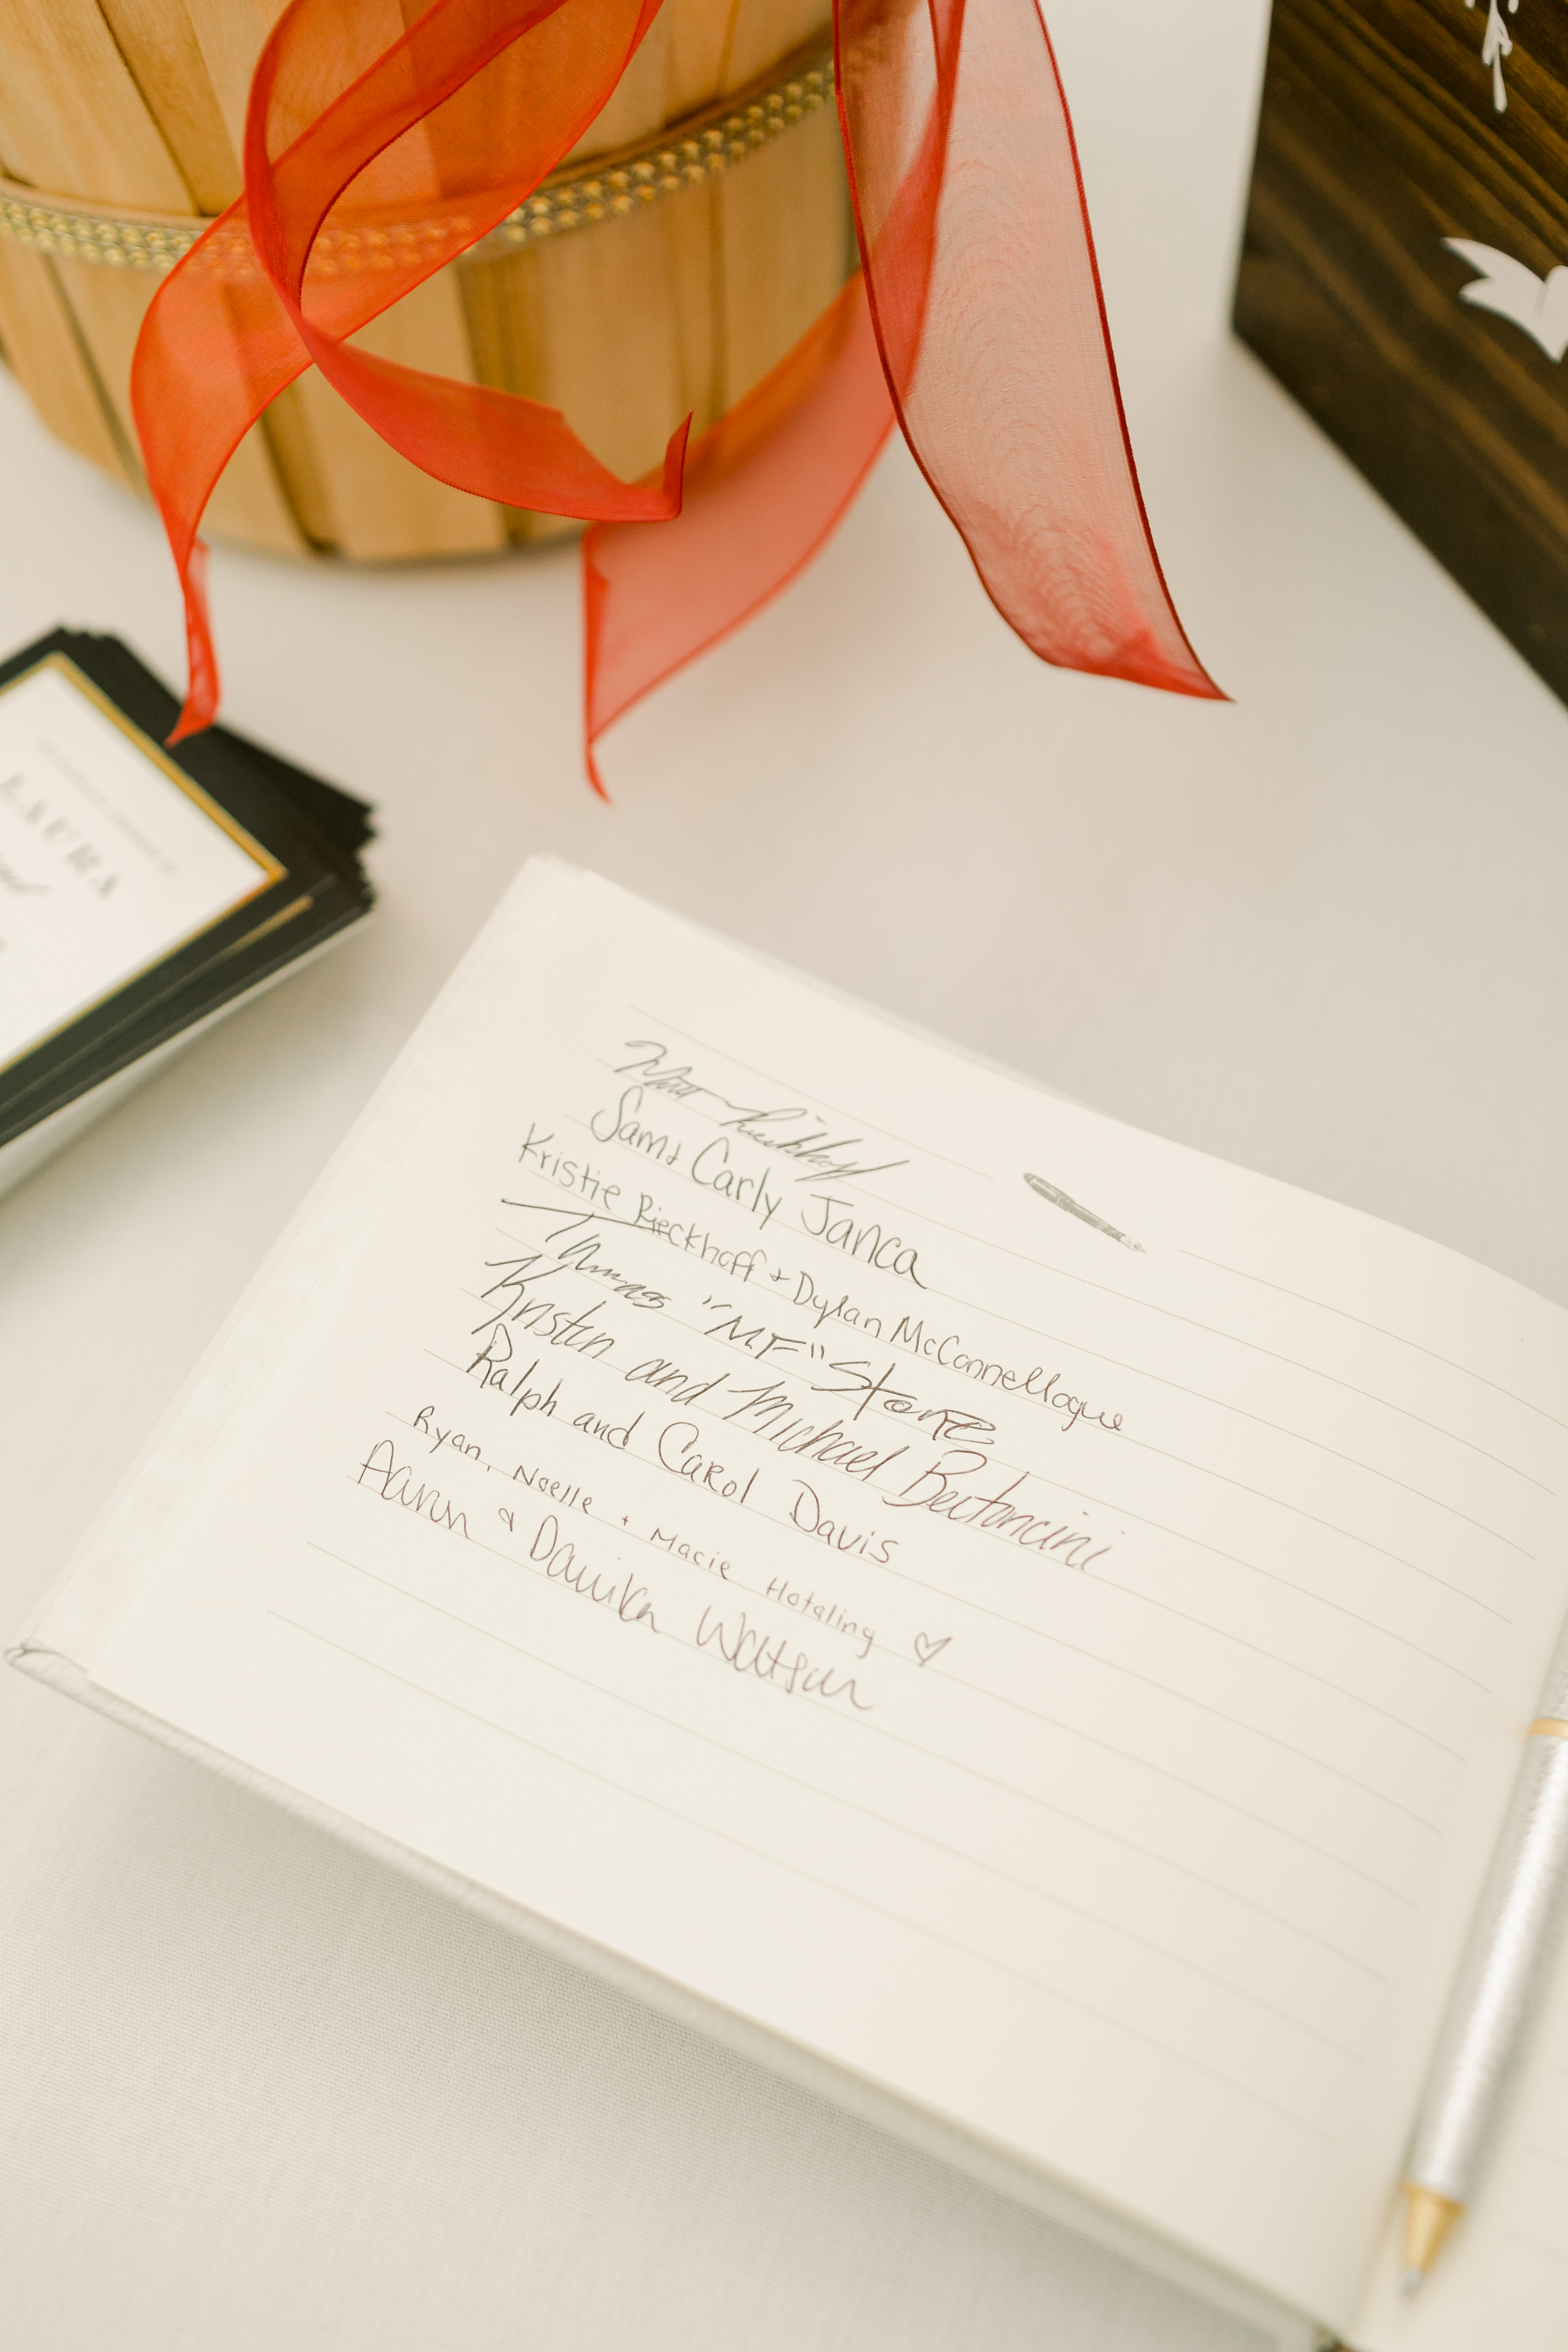 LAURA
and
Matt Rieckhoff
Sam & Carly Janca
Kristie Rieckhoff + Dylan McConnellogue
Thomas "M.F" Stone
Kristin and Michael Bertoncini
Ralph and Carol Davis
Ryan, Noelle + Macie Hotaling ♡
Aaron & Danika Watson